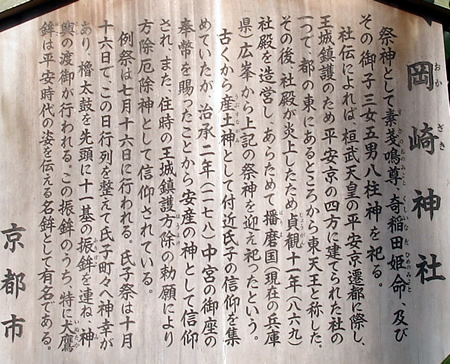 岡崎神社
おかざき
祭神として素戔鳴尊、奇稲田姫命、及び
その御子三女五男八柱神を祀る。
社伝によれば、桓武天皇の平安京遷都に際し、
王城鎮護のため平安京の四方に建てられた社の
一つで、都の東にあるところから東天王と称した。
その後、社殿が炎上したため、貞観十一年(八六九)
社殿を造営し、あらためて播磨国(現在の兵庫
県)広峯から上記の祭神を迎え祀ったという。
古くから産土神として付近氏子の信仰を集
めていたが、治承二年(一一七八)中宮の御座の
奉幣を賜ったことから安産の神として信仰
され、また、往時の王城鎮護、方除の勅願により
方除厄除神として信仰されている。
例祭は七月十六日に行われる。氏子祭は十月
十六日で、この日行列を整えて氏子町々へ神幸が
あり、櫓太鼓を先頭に十一基の振鉾を連ね、神
輿の渡御が行われる。この振鉾のうち、特に大鷹
鉾は平安時代の姿を伝える名鉾として有名である。
京都市